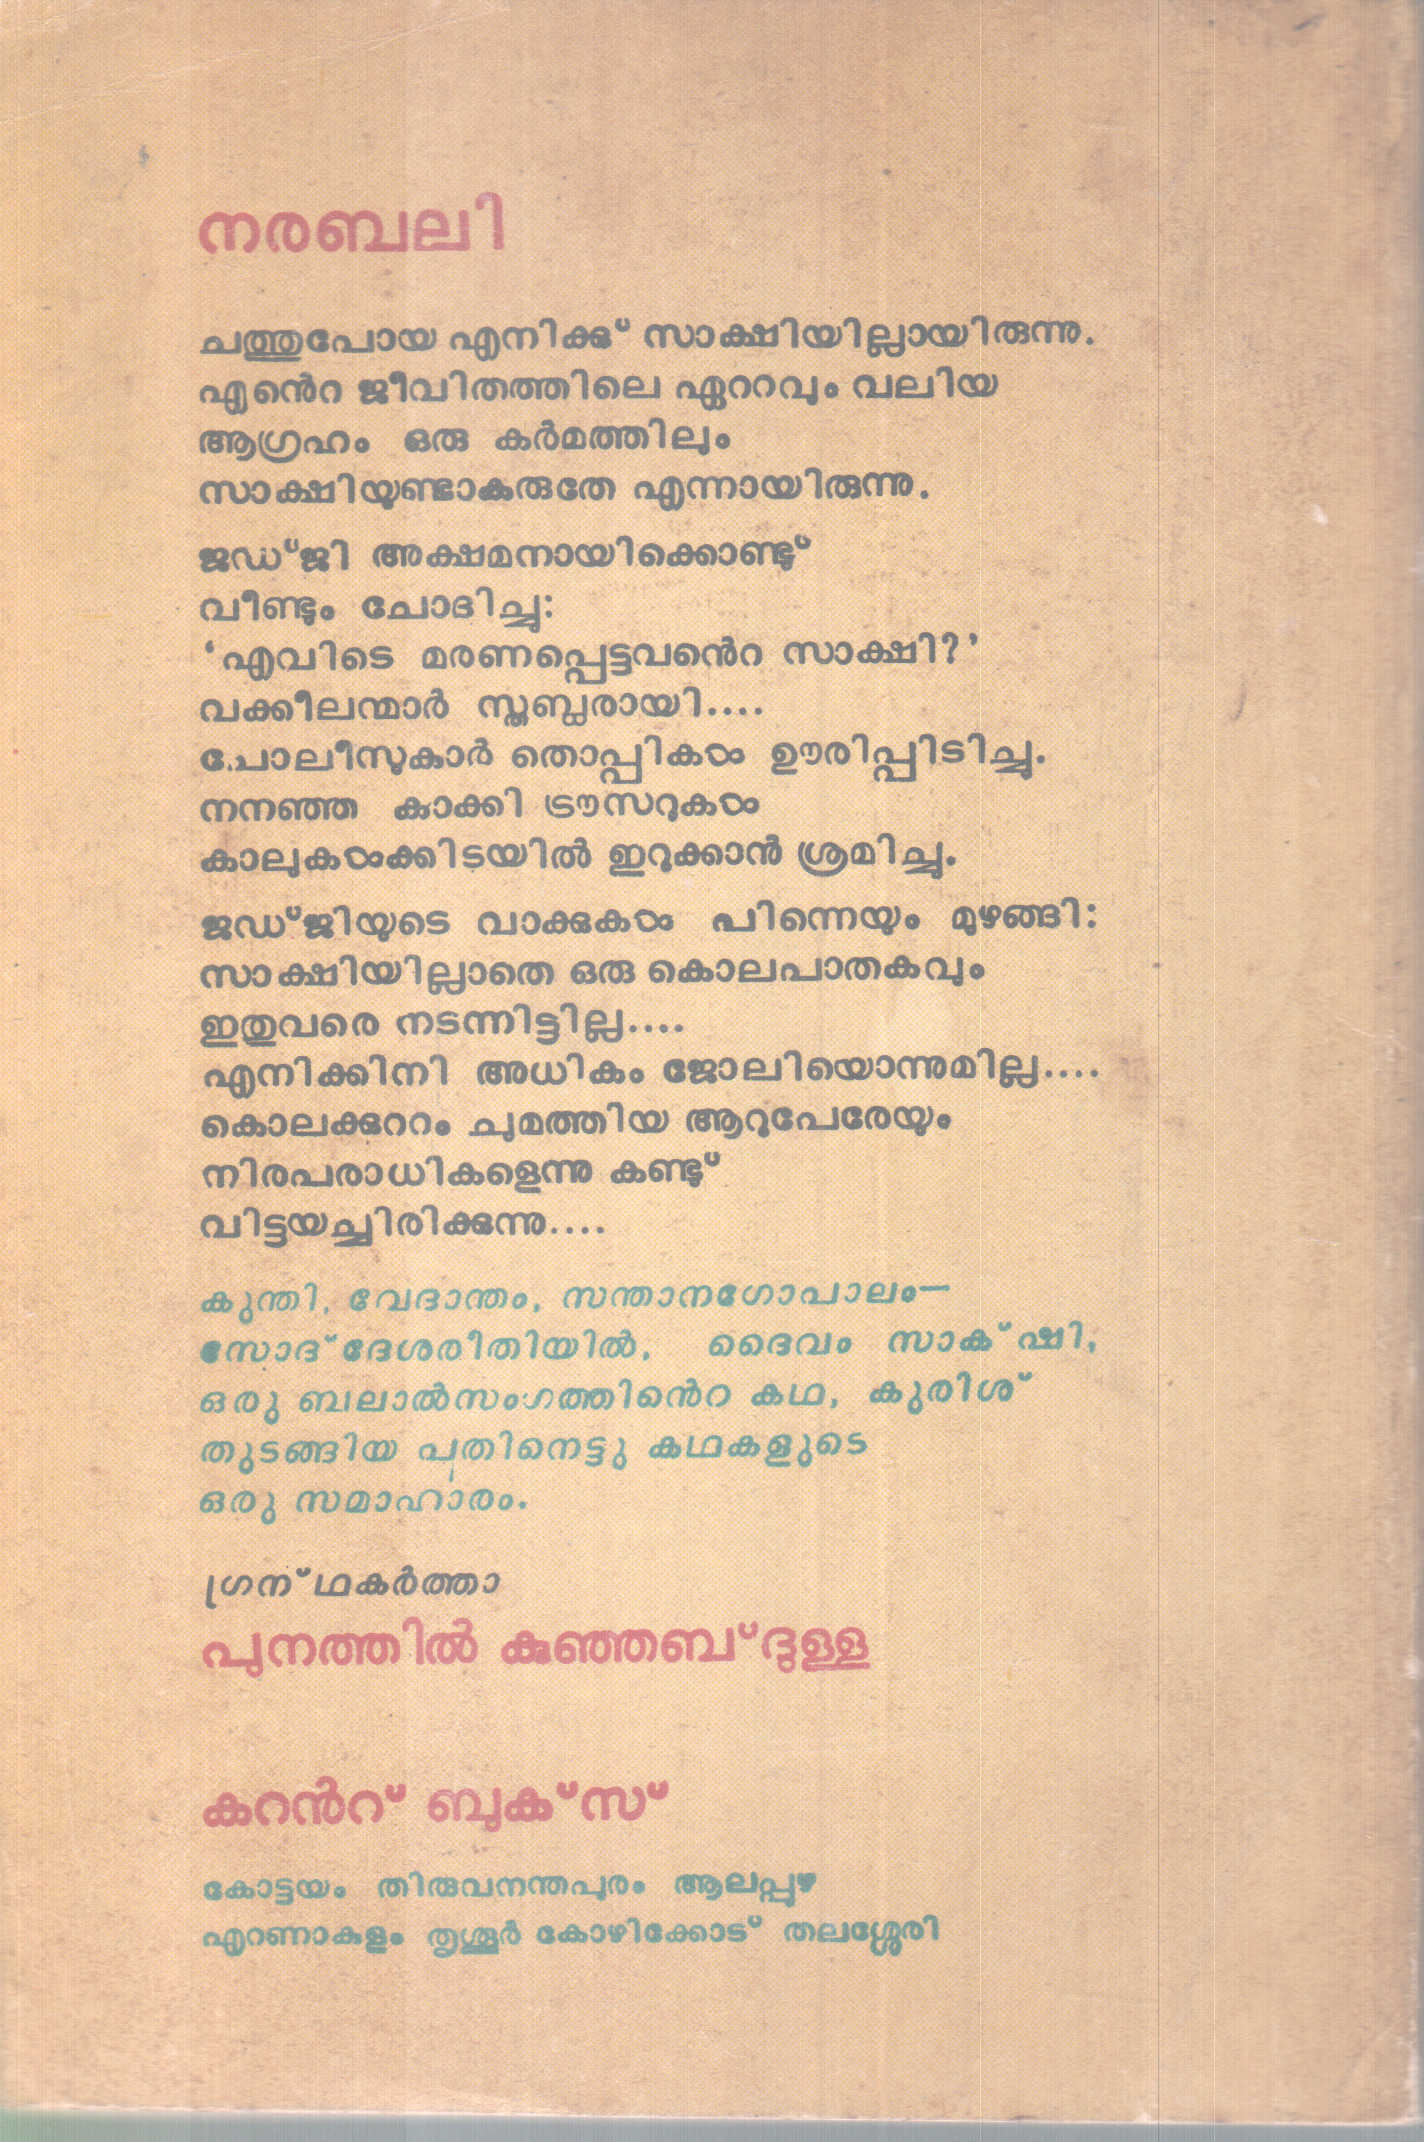 നരബലി
ചത്തുപോയ എനിക്കു് സാക്ഷിയില്ലായിരുന്നു.
എൻെറ ജീവിതത്തിലെ ഏററവും വലിയ
ആഗ്രഹം ഒരു കർമത്തിലും
സാക്ഷിയുണ്ടാകരുതേ എന്നായിരുന്നു.
ജഡ്ജി അക്ഷമനായിക്കൊണ്ടു്
വീണ്ടും ചോദിച്ചു:
‘എവിടെ മരണപ്പെട്ടവൻെറ സാക്ഷി?’
വക്കീലന്മാർ സ്തബ്ധരായി....
പോലീസുകാർ തൊപ്പികൾ ഊരിപ്പിടിച്ചു.
നനഞ്ഞ കാക്കി ട്രൗസറുകൾ
കാലുകൾക്കിടയിൽ ഇറുക്കാൻ ശ്രമിച്ചു.
ജഡ്ജിയുടെ വാക്കുകൾ പിന്നെയും മുഴങ്ങി:
സാക്ഷിയില്ലാതെ ഒരു കൊലപാതകവും
ഇതുവരെ നടന്നിട്ടില്ല....
എനിക്കിനി അധികം ജോലിയൊന്നുമില്ല....
കൊലക്കുററം ചുമത്തിയ ആറുപേരേയും
നിരപരാധികളെന്നു കണ്ടു്
വിട്ടയച്ചിരിക്കുന്നു....
കുന്തി, വേദാന്തം, സന്താനഗോപാലം—
സോദ്ദേശരീതിയിൽ, ദൈവം സാക്ഷി,
ഒരു ബലാൽസംഗത്തിൻെറ കഥ, കുരിശ്
തുടങ്ങിയ പതിനെട്ടു കഥകളുടെ
ഒരു സമാഹാരം.
ഗ്രന്ഥകർത്താ
പുനത്തിൽ കുഞ്ഞബ്ദുള്ള
കറൻറ് ബുക്സ്
കോട്ടയം തിരുവനന്തപുരം ആലപ്പുഴ
എറണാകുളം തൃശ്ശൂർ കോഴിക്കോട് തലശ്ശേരി